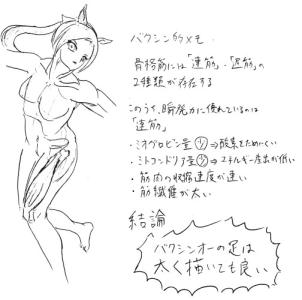 バクシン的メモ
骨格筋には「速筋」・「遅筋」の
2種類が存在する
このうち、瞬発力に優れているのは
「速筋」
・ミオグロビン量少⇒酸素をためにくい
・ミトコンドリア量少⇒エネルギー産出が低い
・筋肉の収縮速度が速い
・筋繊維が太い
結論
バクシンオーの足は
太く描いても良い